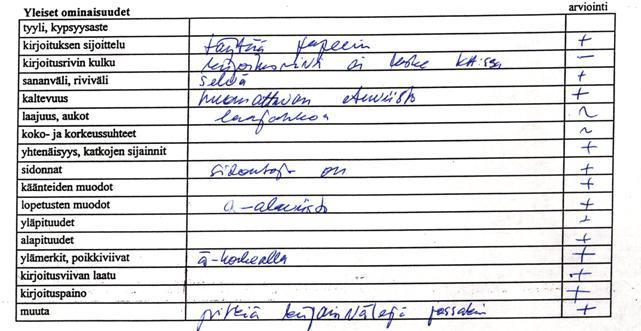 Yleiset ominaisuudet arviointi
tyyli, kypsyysaste
kirjoituksen sijoittelu täyttää paperin +
kirjoitusrivin kulku ei –
sananväli, riviväli selvä +
kaltevuus huomattavan etuviisto +
laajuus, aukot laajahkoa ~
koko- ja korkeussuhteet ~
yhtenäisyys, katkojen sijainnit +
sidonnat sidontoja on +
käänteiden muodot +
lopetusten muodot a-alaviisto +
yläpituudet +
alapituudet +
ylämerkit, poikkiviivat ä-korkealla +
kirjoitusviivan laatu +
kirjoituspaino +
muuta pitkiä +